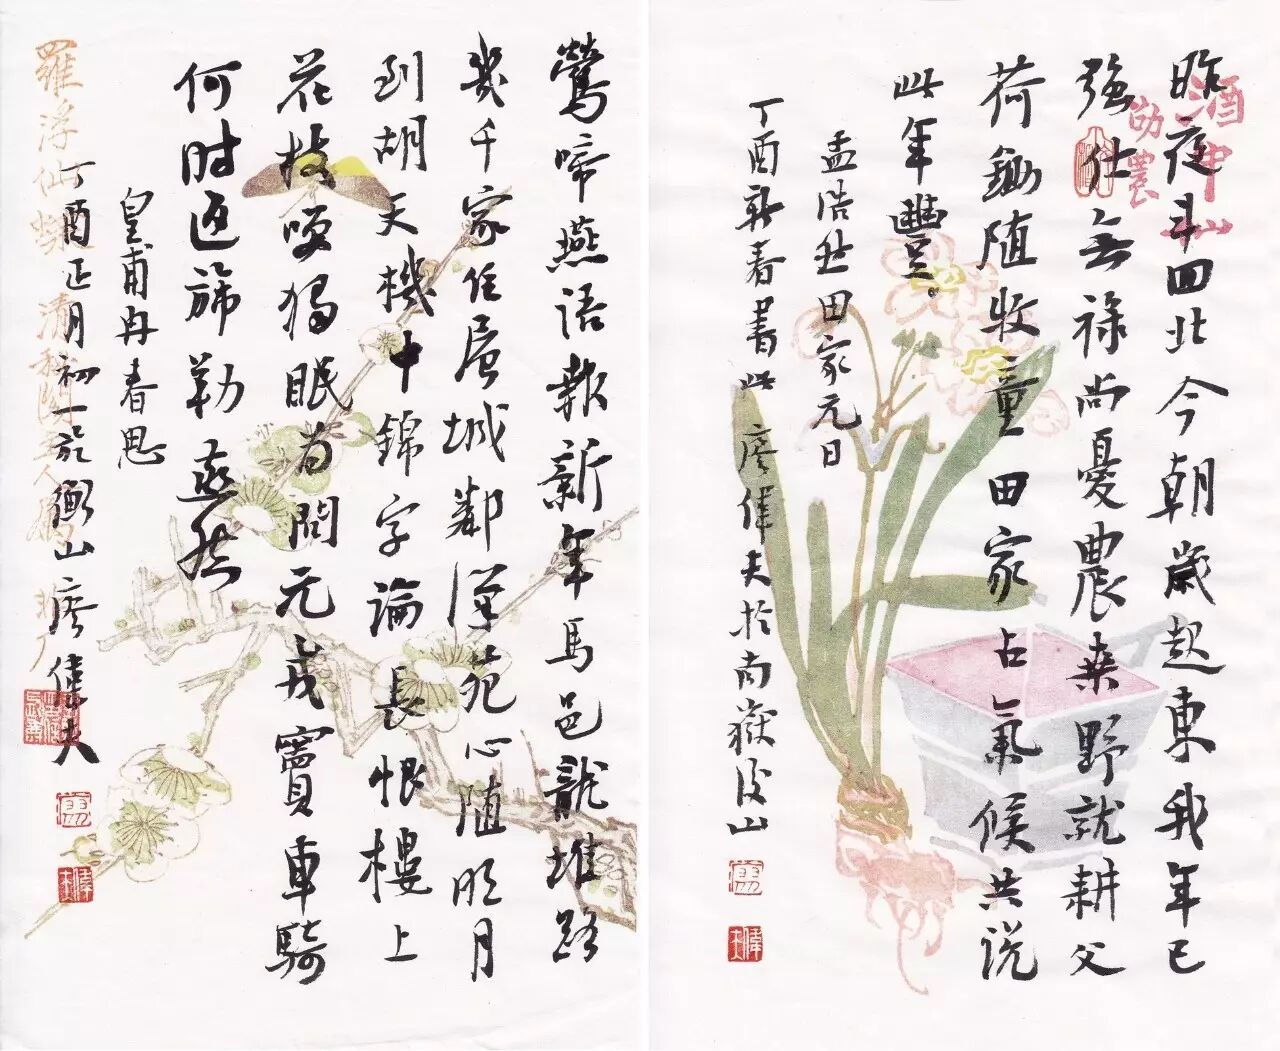 昨夜斗回北今朝歲起東我年已
強仕無祿尚憂農桑野就耕父
荷鋤随牧童田家占氣候共説
此年豐
孟浩然田家元日
丁酉新春書此 廖偉夫於南嶽後山
酒中仙
鶯啼燕語報新年馬邑龍堆路
幾千家住層城鄰漢苑心随明月
到胡天機中錦字論長恨樓上
花枝笑獨眠為問元戎竇車騎
何时返旆勒燕然
皇甫冉春思
丁酉正月初一於衡山廖偉夫
羅浮仙蝶